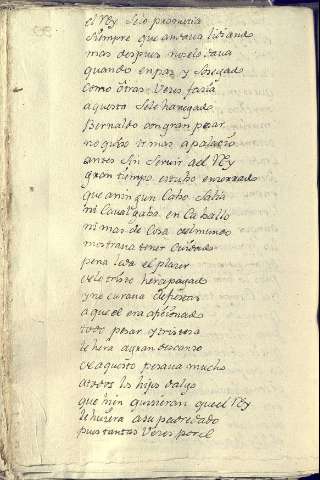 el Rey selo prometia
siempre que andava lidiando
mas despues no selo dava
quando en paz y sosegado
como otras veses fasia
aquesta se le ha negado
Bernaldo con gran pesar
no quiso ir mas a palacio
antes sin servir a el Rey
gran tiempo estubo enserrado
que a ningun cabo salia
ni cavalgaba en caballo
ni mas de cosa del mundo
mostrava tener cuidado
pena leda el plaser
de lo triste hera pagado
y no curava de fiestas
a que el era afisionado
todo pesar y tristesa
le hera a gran descanso
de aquesto pesava mucho
a todos los hijos dalgo
que bien quisieran que el Rey
le huviera a su padre dado
pues tantas veses por el